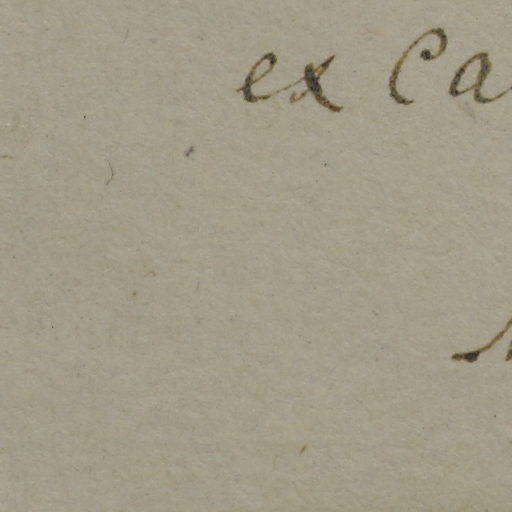 ex Ca